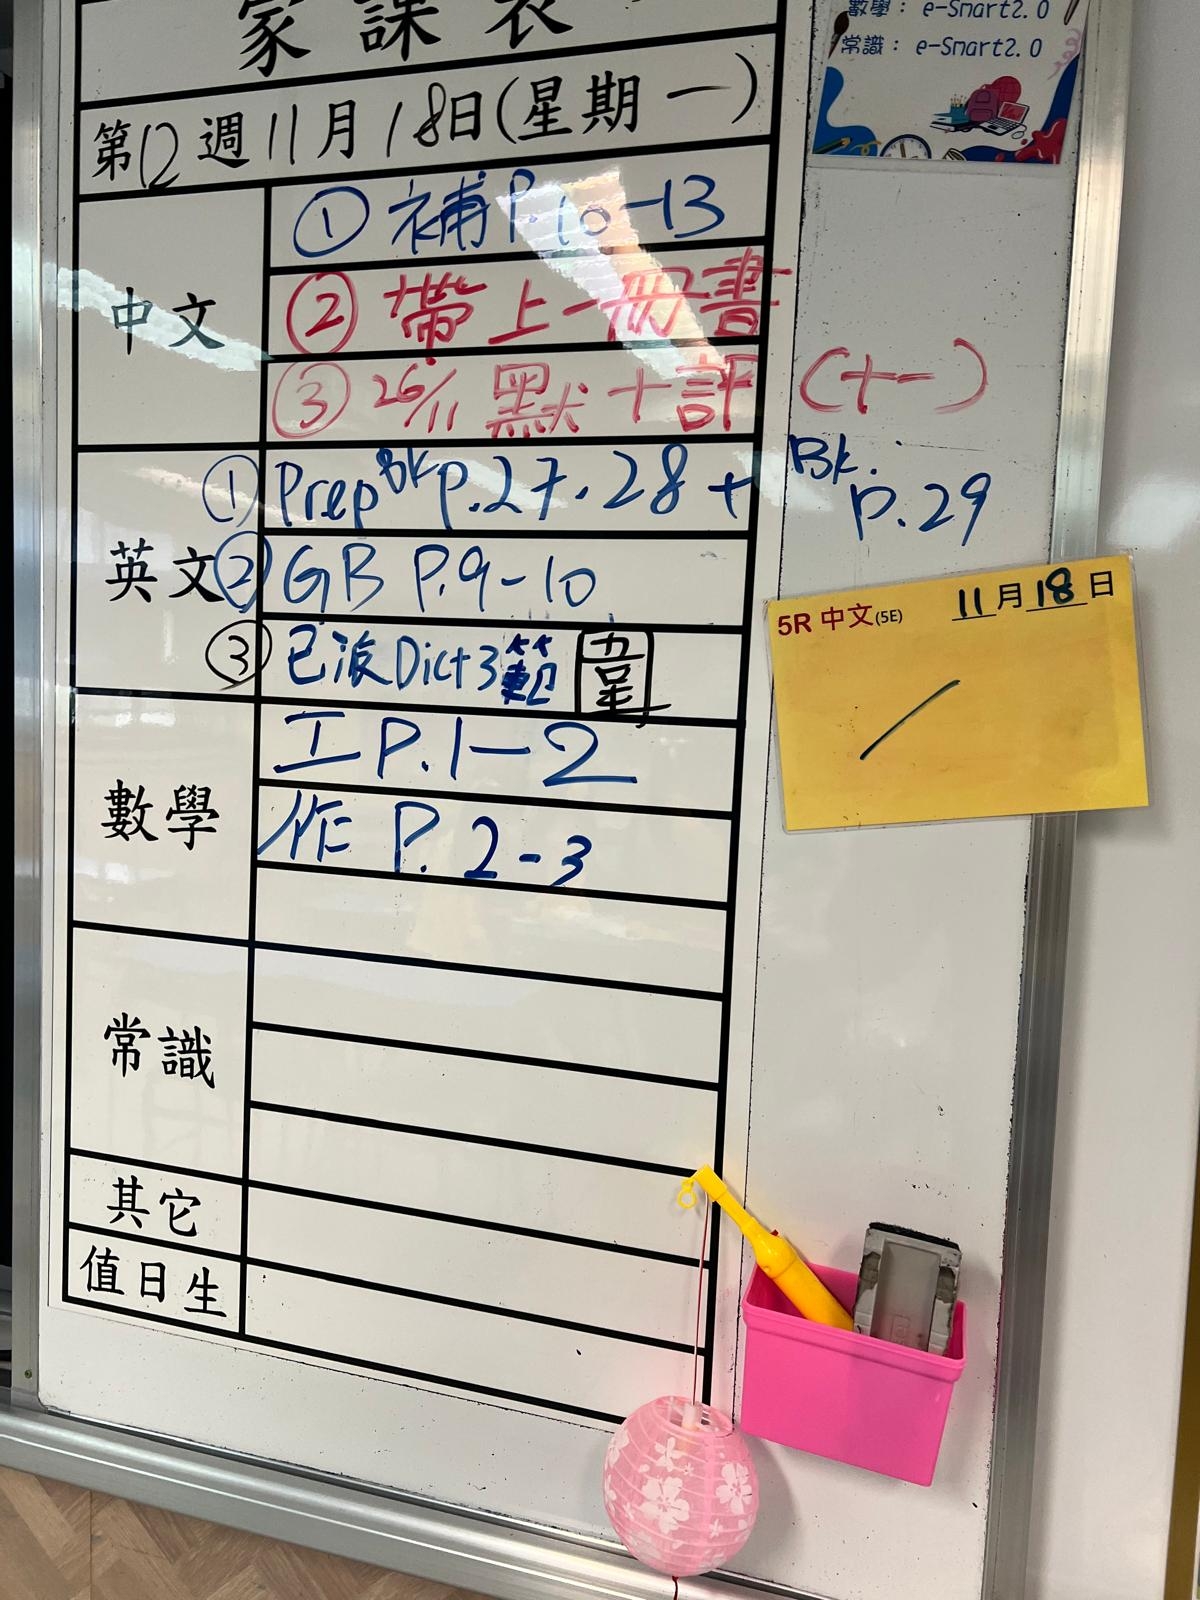 家課表
數學： e-Smart2.0
常識： e-Smart2.0
第12週11月18日(星期一)
中文
① 補P.10-13
② 帶上一冊書
③ 26/11 默十評 (十一)
英文
① Prep Bk P.27.28 + Bk. P.29
② GB P.9-10
③ 已派Dict3
數學
工P.1-2
作 P. 2-3
常識
其它
值日生
5R 中文(5E) 11月18日